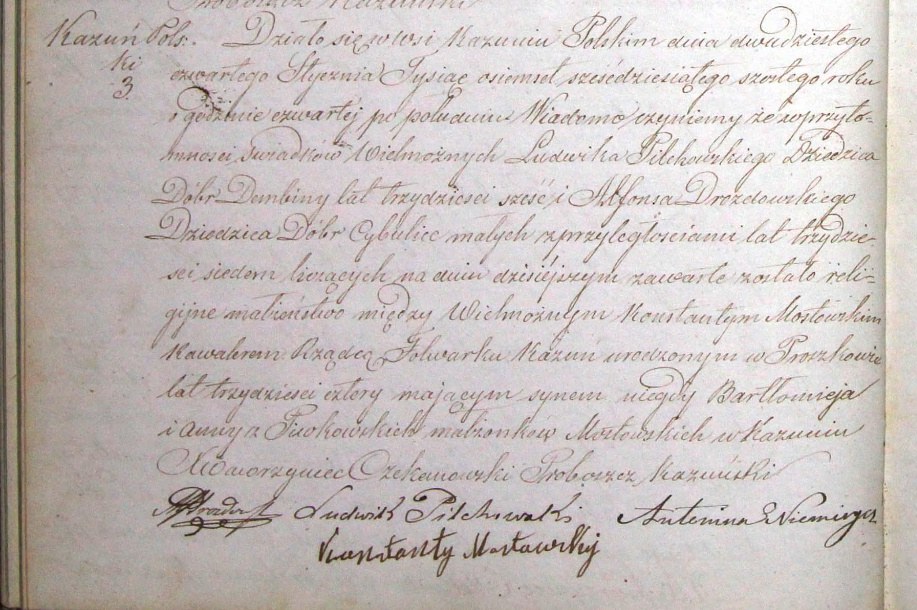 Proboszcz Kazuński
Kazuń Pols: Działo się w wsi Kazuniu Polskim dnia dwudziestego
ki czwartego Stycznia Tysiąc osiemset sześćdziesiątego szóstego roku
3. o godzinie czwartej po południu Wiadomo czyniemy że w przyto-
mności świadków Wielmożnych Ludwika Pilchowskiego Dziedzica
Dóbr Dembiny lat trzydzieści sześć i Alfonsa Drozdowskiego
Dziedzica Dóbr Cybulice małych z przyległościami lat trzydzie-
ści siedem liczących na dniu dzisiejszym zawarte zostało reli-
gijne małżeństwo między Wielmożnym Konstantym Mostowskim
Kawalerem Rządcą Folwarku Kazuń urodzonym w Proszkowie
lat trzydzieści cztery mającym synem niegdy Bartłomieja
i Anny z małżonków Mostowskich w Kazuniu
X Wawrzyniec Czekanowski Proboszcz Kazuński
Ludwik Pilchowski Antonina Niemirycz
Konstanty Mostowski